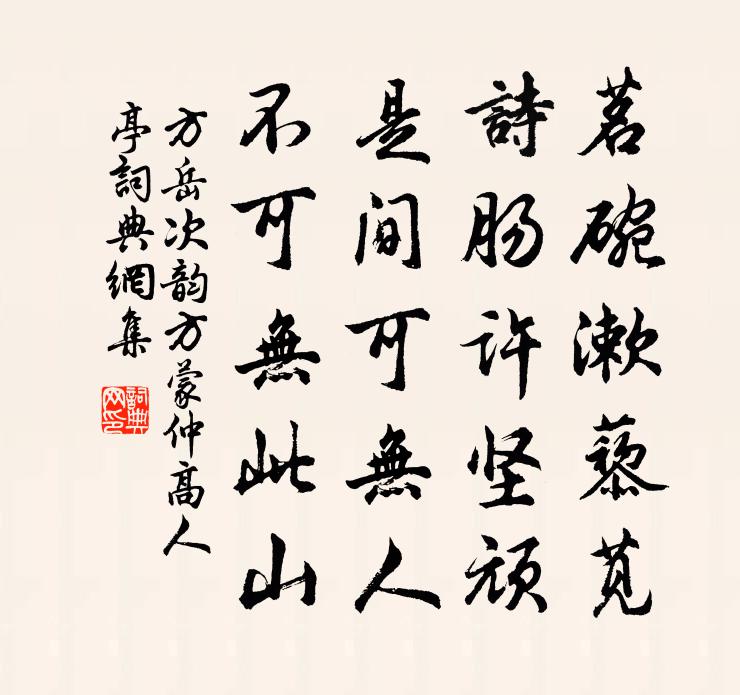 茗碗漱藜莧
詩肠许坚頑
是间可無人
不可無此山
方岳次韵方蒙仲高人
亭詞典網集
詞典网印